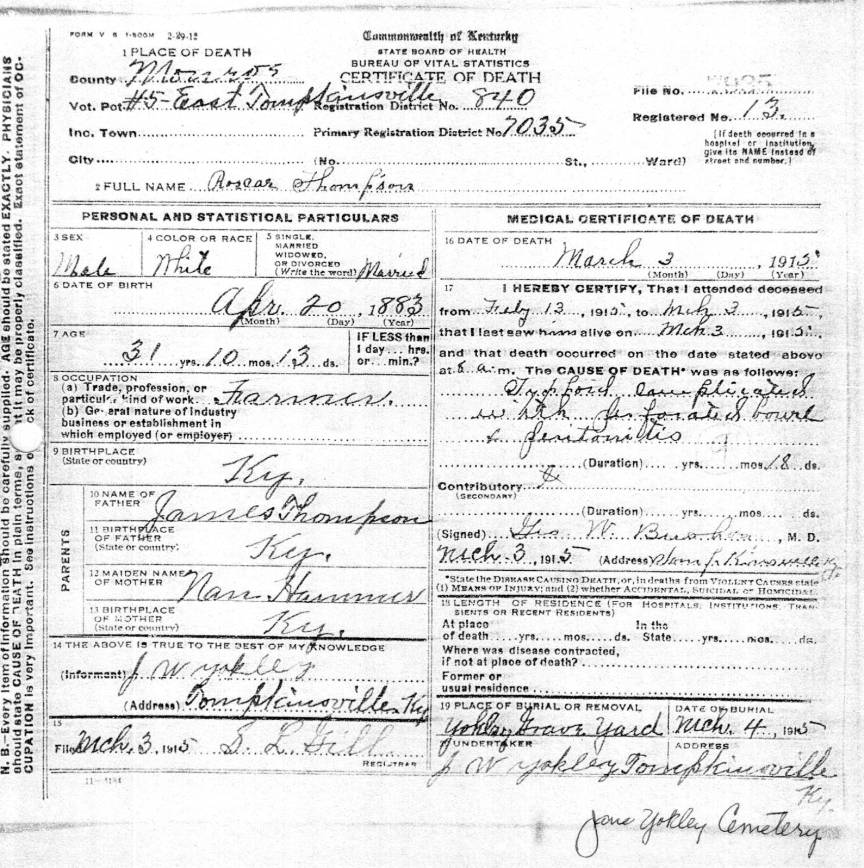 FORM V S 1-500M 2-29-12
Commonwealth of Kentucky
STATE BOARD OF HEALTH
BUREAU OF VITAL STATISTICS
CERTIFICATE OF DEATH
1 PLACE OF DEATH
County Monroe
Vot. Pct #5-East Tompkinsville Registration District No. 840
File No.
Registered No. 13.
Inc. Town Primary Registration District No 7035
[If death occurred in a hospital or institution, give its NAME instead of street and number.]
City (No. St., Ward)
2 FULL NAME Roscar Thompson
PERSONAL AND STATISTICAL PARTICULARS
3 SEX Male
4 COLOR OR RACE White
5 SINGLE, MARRIED WIDOWED, OR DIVORCED (Write the word) Married
6 DATE OF BIRTH
Apr. 20, 1883
(Month) (Day) (Year)
7 AGE
31 yrs. 10 mos. 13 ds.
IF LESS than 1 day... hrs. or... min.?
8 OCCUPATION
(a) Trade, profession, or particular kind of work Farmer.
(b) General nature of industry business or establishment in which employed (or employer)
9 BIRTHPLACE
(State or country)
Ky.
PARENTS
10 NAME OF FATHER James Thompson
11 BIRTHPLACE OF FATHER (State or country) Ky.
12 MAIDEN NAME OF MOTHER Nan Hammer
13 BIRTHPLACE OF MOTHER (State or country) Ky.
14 THE ABOVE IS TRUE TO THE BEST OF MY KNOWLEDGE
(Informant) J W Yokley
(Address) Tompkinsville Ky
15
Filed Mch. 3, 1915 S. L. Gill
REGISTRAR
MEDICAL CERTIFICATE OF DEATH
16 DATE OF DEATH
March 3, 1915
(Month) (Day) (Year)
17 I HEREBY CERTIFY, That I attended deceased
from Feby 13, 1915, to Mch 3, 1915,
that I last saw him alive on Mch 3, 1915,
and that death occurred on the date stated above
at 8 a. m. The CAUSE OF DEATH* was as follows:
Typhoid complicated
with perforated bowel
& peritonitis
(Duration) yrs. mos. 18 ds.
Contributory
(SECONDARY)
(Duration) yrs. mos. ds.
(Signed) Geo W. , M. D.
Mch 3, 1915 (Address)
*State the DISEASE CAUSING DEATH, or, in deaths from VIOLENT CAUSES state
(1) MEANS OF INJURY; and (2) whether ACCIDENTAL, SUICIDAL or HOMICIDAL
18 LENGTH OF RESIDENCE (FOR HOSPITALS, INSTITUTIONS, TRANSIENTS OR RECENT RESIDENTS)
At place of death yrs. mos. ds. In the State yrs. mos. ds.
Where was disease contracted, if not at place of death?
Former or usual residence
19 PLACE OF BURIAL OR REMOVAL Yokley Grave Yard
DATE OF BURIAL Mch. 4, 1915
UNDERTAKER J W Yokley
ADDRESS Tompkinsville Ky.
11-3184
Jane Yokley Cemetery
N. B.—Every item of information should be carefully supplied. AGE should be stated EXACTLY. PHYSICIANS
should state CAUSE OF DEATH in plain terms, it may be properly classified. Exact statement of OC-
CUPATION is very important. See instructions ck of certificate.